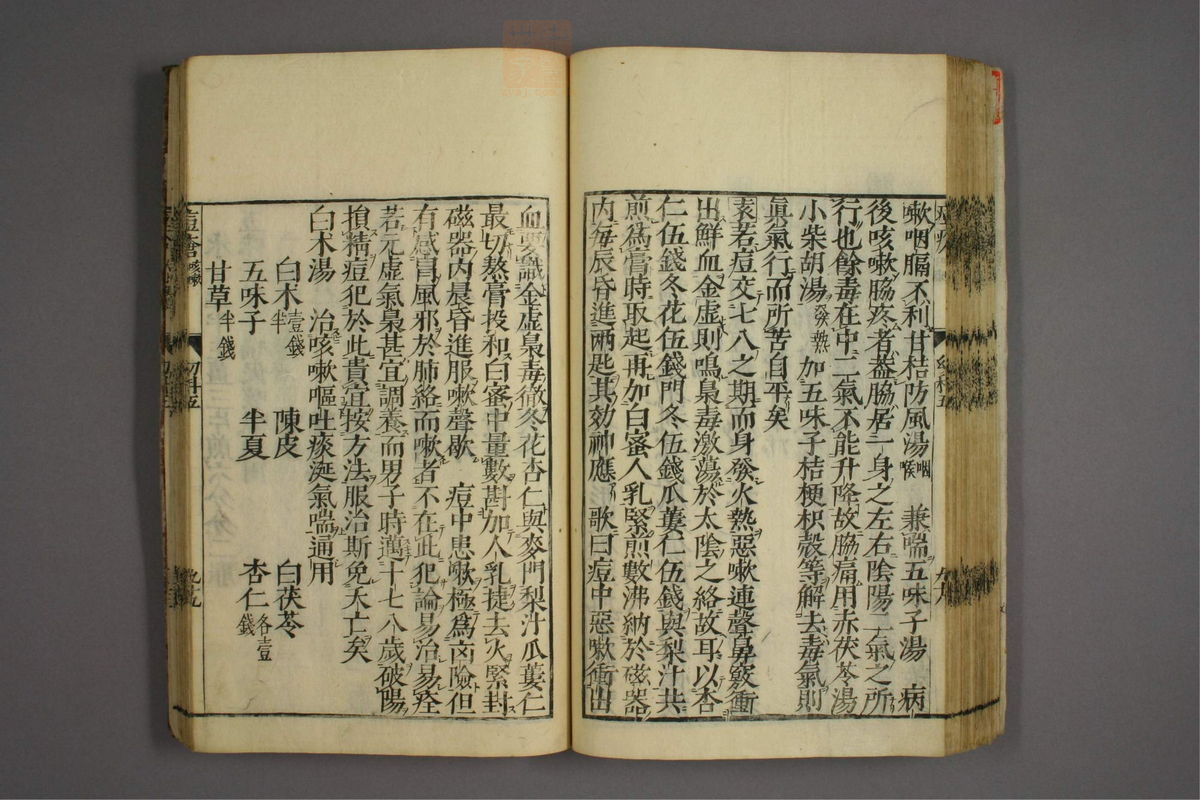 嗽咽膈不利甘桔防風湯咽喉 兼喘五味子湯 病
後咳嗽脇疼者蓋脇居一身之左右陰陽二氣之所
行也餘毒在中二氣不能升降故脇痛用赤茯苓湯
小柴胡湯發熱加五味子桔梗枳殼等解去毒氣則
眞氣行而所苦自平矣
表若痘交七八之期而身發火熱惡嗽連聲鼻竅衝
出鮮血金虛則鳴梟毒激蕩於太陰之絡故耳以杏
仁伍錢冬花伍錢門冬伍錢瓜蔞仁伍錢與梨汁共
煎爲膏時取起再加白蜜人乳緊煎數沸納於磁器
内每辰昏進兩匙其効神應 歌曰痘中惡嗽衝出
血要識金虛梟毒徹冬花杏仁與麥門梨汁瓜蔞仁
最切熬膏投和白蜜中量數斟加人乳捷去火緊封
磁器内晨昏進服嗽聲歇 痘中患嗽極爲凶險但
有感冐風邪於肺絡而嗽者不在此犯論易治易痊
若元虛氣梟甚宜調養而男子時邁十七八歲破陽
損精痘犯於此貴宜按方法服治斯免夭亡矣
白木湯 治咳嗽嘔吐痰涎氣喘通用
白木壹錢半 陳皮 白茯苓
五味子 半夏 杏仁各壹錢
甘草半錢
痘瘡 咳嗽 幼科五